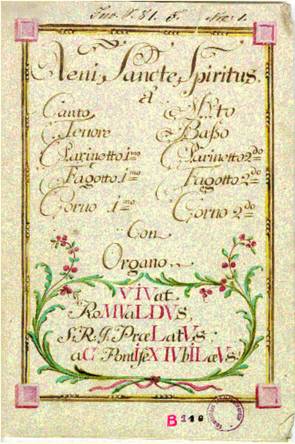 Veni Sancte Spiritus.
et
Canto Alto
Tenore Basso
Clarinetto 1mo Clarinetto 2do
Fagotto 1mo Fagotto 2do
Corno 1mo Corno 2do
Con
Organo.
VIVat
RoMVaLDVs
S: R: J: PræLatVs
aC PontIfeX IVbILæVs
B